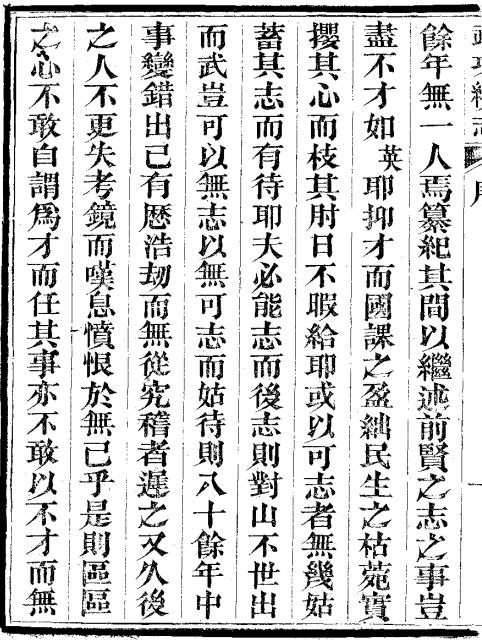 武功續志 序
餘年無一人焉纂紀其間以繼述前賢之志之事豈
盡不才如英耶抑才而國課之盈絀民生之枯菀實
攖其心而枝其肘日不暇給耶或以可志者無幾姑
蓄其志而有待耶夫必能志而後志則對山不世出
而武豈可以無志以無可志而姑待則八十餘年中
事變錯出已有歷浩劫而無從究稽者遲之又久後
之人不更失考鏡而嘆息憤恨於無已乎是則區區
之心不敢自謂爲才而任其事亦不敢以不才而無